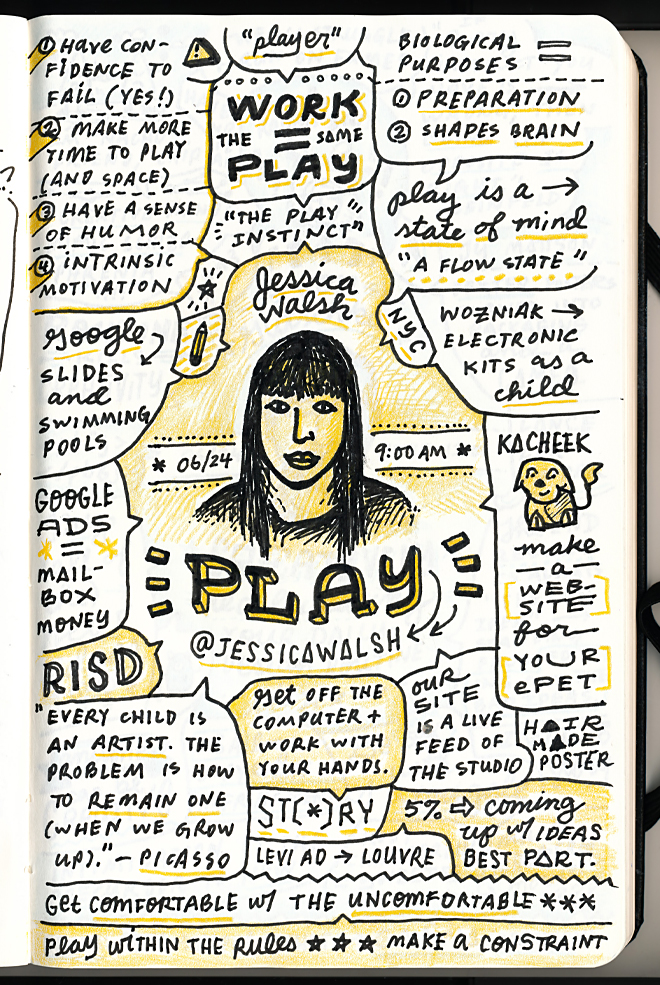 ① Have CON-
FIDENCE TO
FAIL (YES!)
② MAKE MORE
TIME TO PLAY
(AND SPACE)
③ HAVE A SENSE
OF HUMOR
④ INTRINSIC
MOTIVATION
"player"
WORK
THE = SAME
PLAY
"THE PLAY
INSTINCT"
BIOLOGICAL
PURPOSES =
① PREPARATION
② SHAPES BRAIN
play is a →
state of mind
"A FLOW STATE"
Jessica
Walsh
NYC
WOZNIAK →
ELECTRONIC
KITS as a
child
google
SLIDES
and
SWIMMING
POOLS
* 06/24
9:00 AM *
KACHEEK
make
a
WEB-
SITE
for
YOUR
ePET
GOOGLE
ADS
* = *
MAIL-
BOX
MONEY
PLAY
@JESSICAWALSH
RISD
"EVERY CHILD IS
AN ARTIST. THE
PROBLEM IS HOW
TO REMAIN ONE
(WHEN WE GROW
UP)." - PICASSO
get OFF THE
COMPUTER +
WORK WITH
YOUR HANDS.
OUR
SITE
IS A LIVE
FEED OF
THE STUDIO
HAIR
MADE
POSTER
ST(*)RY
LEVI AD → LOUVRE
5% ⇨ coming
up w/ IDEAS
BEST PART.
Get COMFORTABLE w/ THE UNCOMFORTABLE ***
Play WITHIN THE RULES ★ ★ ★ MAKE A CONSTRAINT